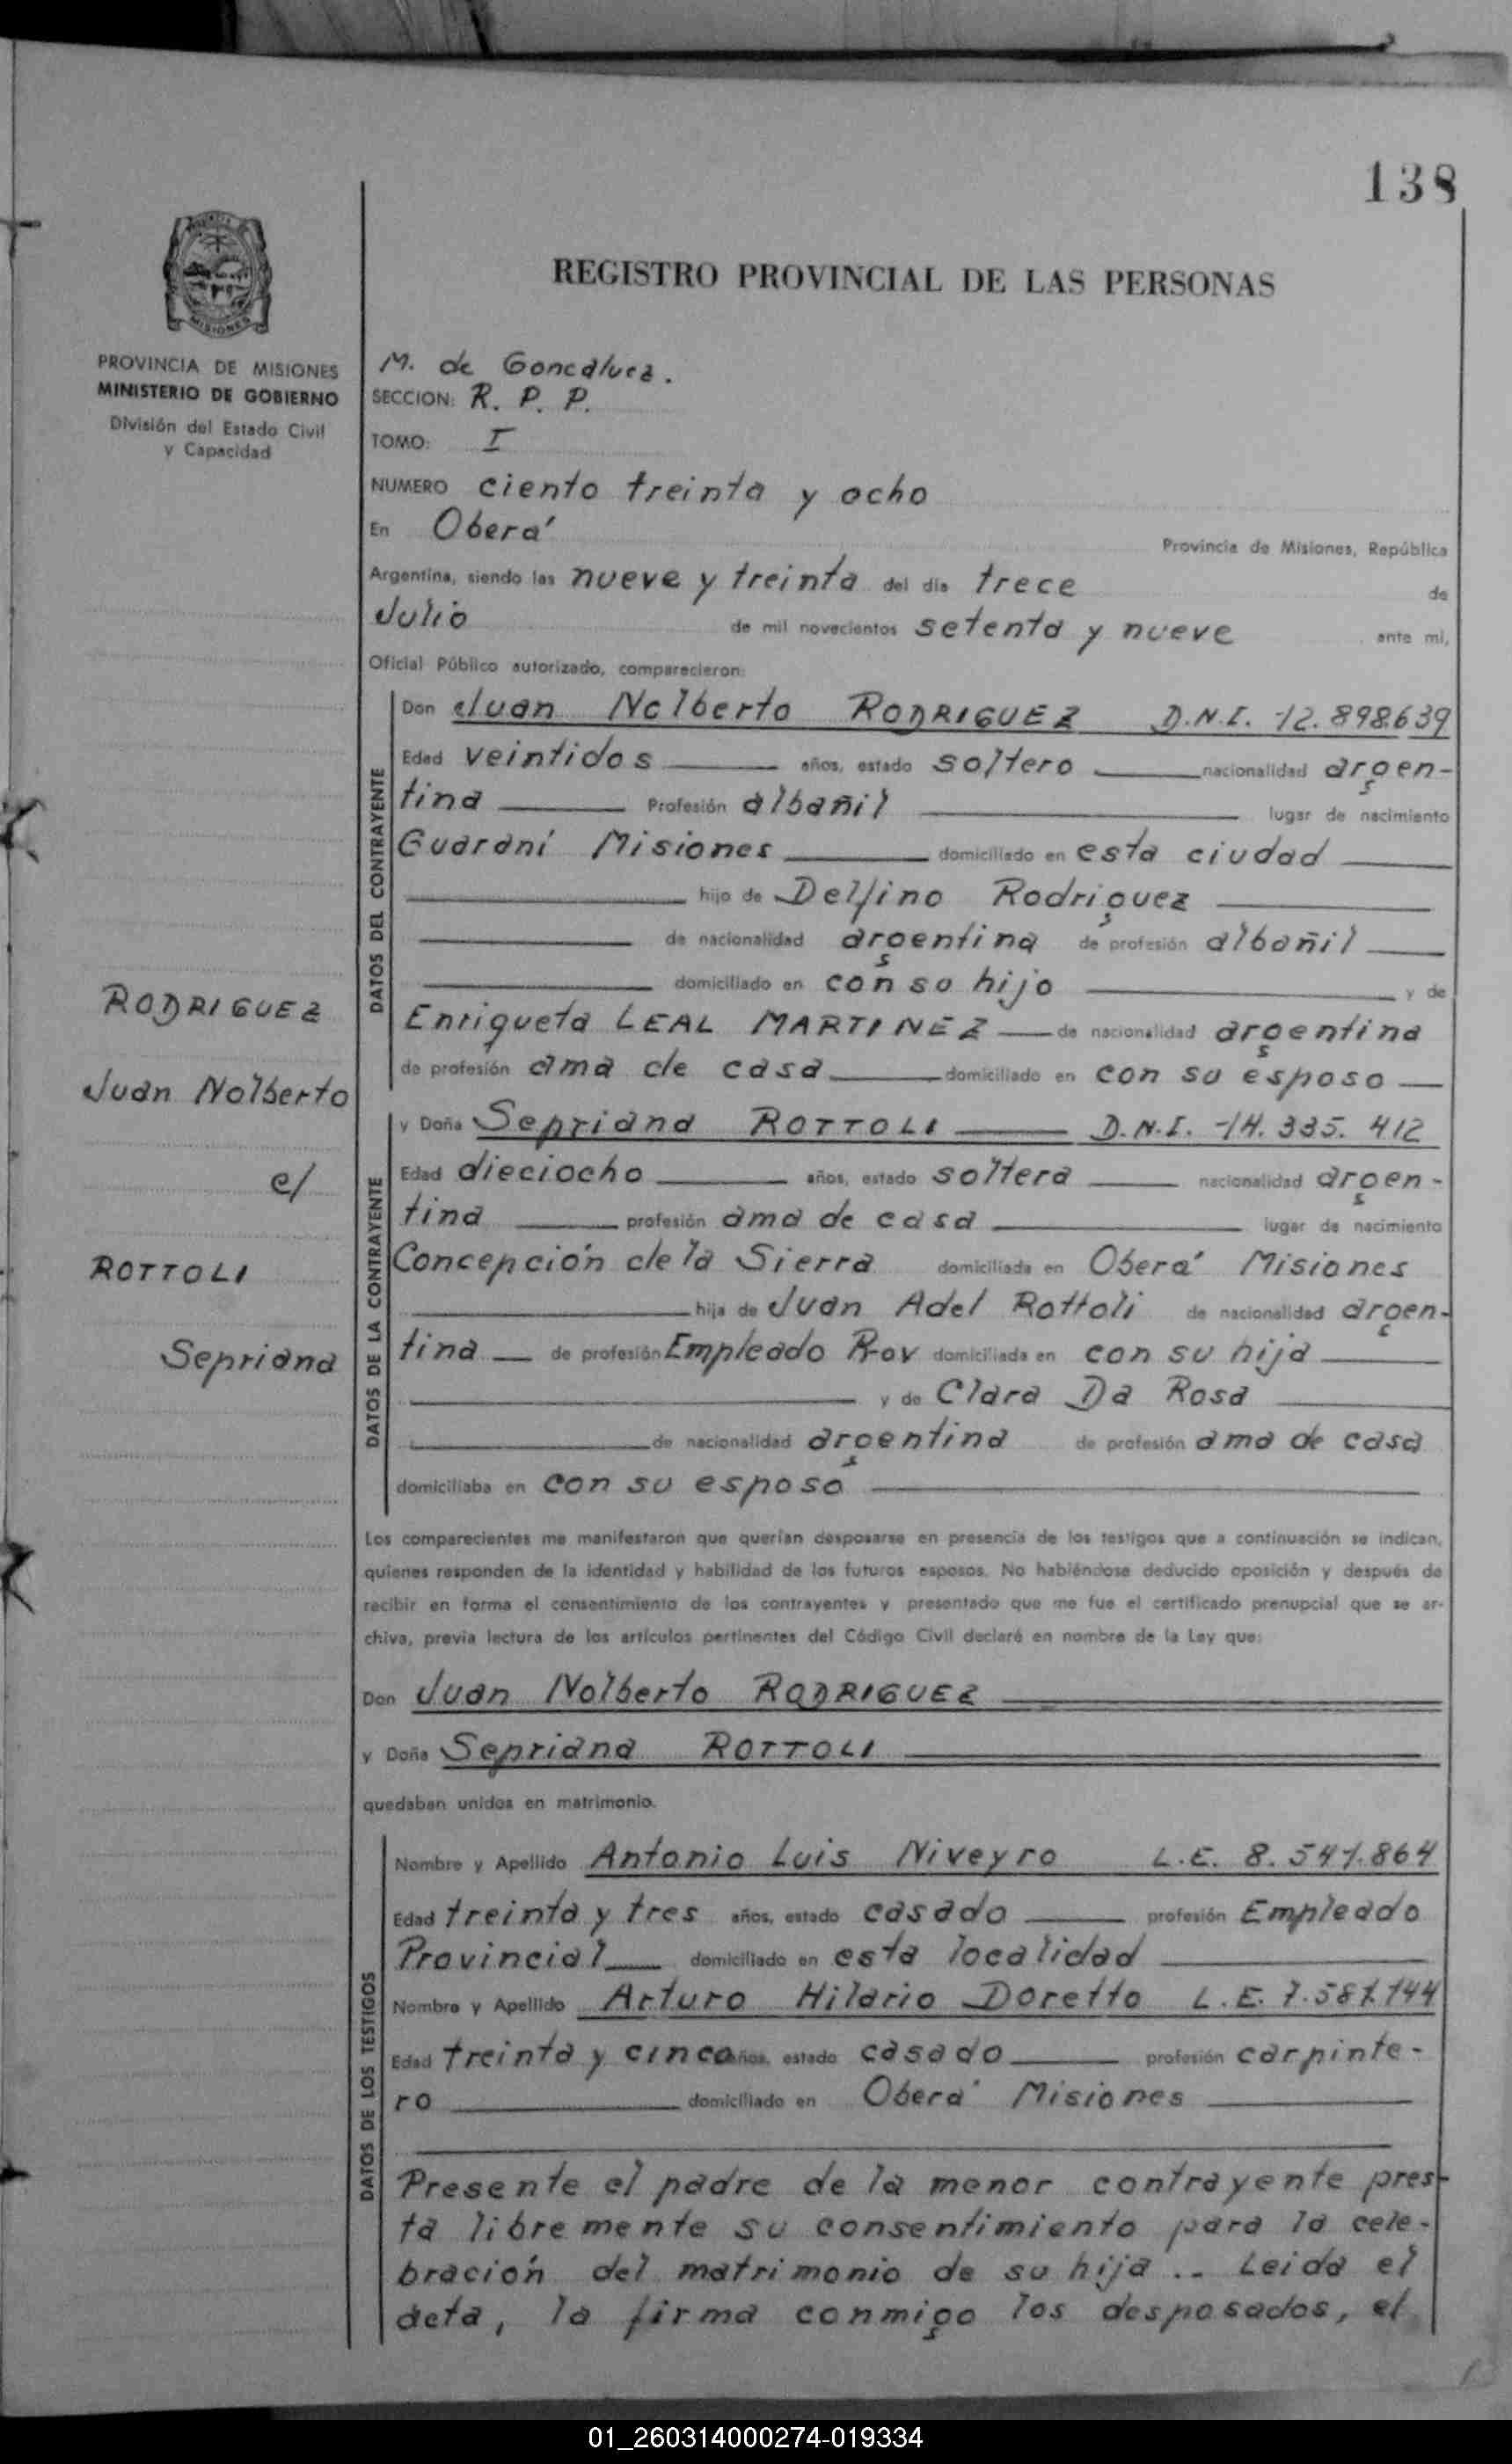 138
REGISTRO PROVINCIAL DE LAS PERSONAS
MISIONES
PROVINCIA DE MISIONES
MINISTERIO DE GOBIERNO
División del Estado Civil
y Capacidad
M. de Goncalvez.
SECCION: R. P. P.
TOMO: I
NUMERO ciento treinta y ocho
En Oberá Provincia de Misiones, República
Argentina, siendo las nueve y treinta del día trece de
Julio de mil novecientos setenta y nueve ante mí,
Oficial Público autorizado, comparecieron:
DATOS DEL CONTRAYENTE
Don Juan Nolberto RODRIGUEZ D.N.I. 12.898.639
Edad veintidos años, estado soltero nacionalidad argen-
tina Profesión albañil lugar de nacimiento
Guaraní Misiones domiciliado en esta ciudad
hijo de Delfino Rodriguez
de nacionalidad argentina de profesión albañil
domiciliado en con su hijo y de
Enriqueta LEAL MARTINEZ de nacionalidad argentina
de profesión ama de casa domiciliado en con su esposo
RODRIGUEZ
Juan Nolberto
c/
ROTTOLI
Sepriana
DATOS DE LA CONTRAYENTE
y Doña Sepriana ROTTOLI D.N.I. 14.335.412
Edad dieciocho años, estado soltera nacionalidad argen-
tina profesión ama de casa lugar de nacimiento
Concepción de la Sierra domiciliada en Oberá Misiones
hija de Juan Adel Rottoli de nacionalidad argen-
tina de profesión Empleado Prov domiciliada en con su hija
y de Clara Da Rosa
de nacionalidad argentina de profesión ama de casa
domiciliaba en con su esposo
Los comparecientes me manifestaron que querían desposarse en presencia de los testigos que a continuación se indican,
quienes responden de la identidad y habilidad de los futuros esposos. No habiéndose deducido oposición y después de
recibir en forma el consentimiento de los contrayentes y presentado que me fue el certificado prenupcial que se ar-
chiva, previa lectura de los artículos pertinentes del Código Civil declaré en nombre de la Ley que:
Don Juan Nolberto RODRIGUEZ
y Doña Sepriana ROTTOLI
quedaban unidos en matrimonio.
DATOS DE LOS TESTIGOS
Nombre y Apellido Antonio Luis Niveyro L.E. 8.541.864
Edad treinta y tres años, estado casado profesión Empleado
Provincial domiciliado en esta localidad
Nombre y Apellido Arturo Hilario Doretto L.E. 7.581.144
Edad treinta y cinco años, estado casado profesión carpinte-
ro domiciliado en Oberá Misiones
Presente el padre de la menor contrayente pres-
ta libremente su consentimiento para la cele-
bración del matrimonio de su hija .. Leida el
acta, la firma conmigo los desposados, el
01_260314000274-019334